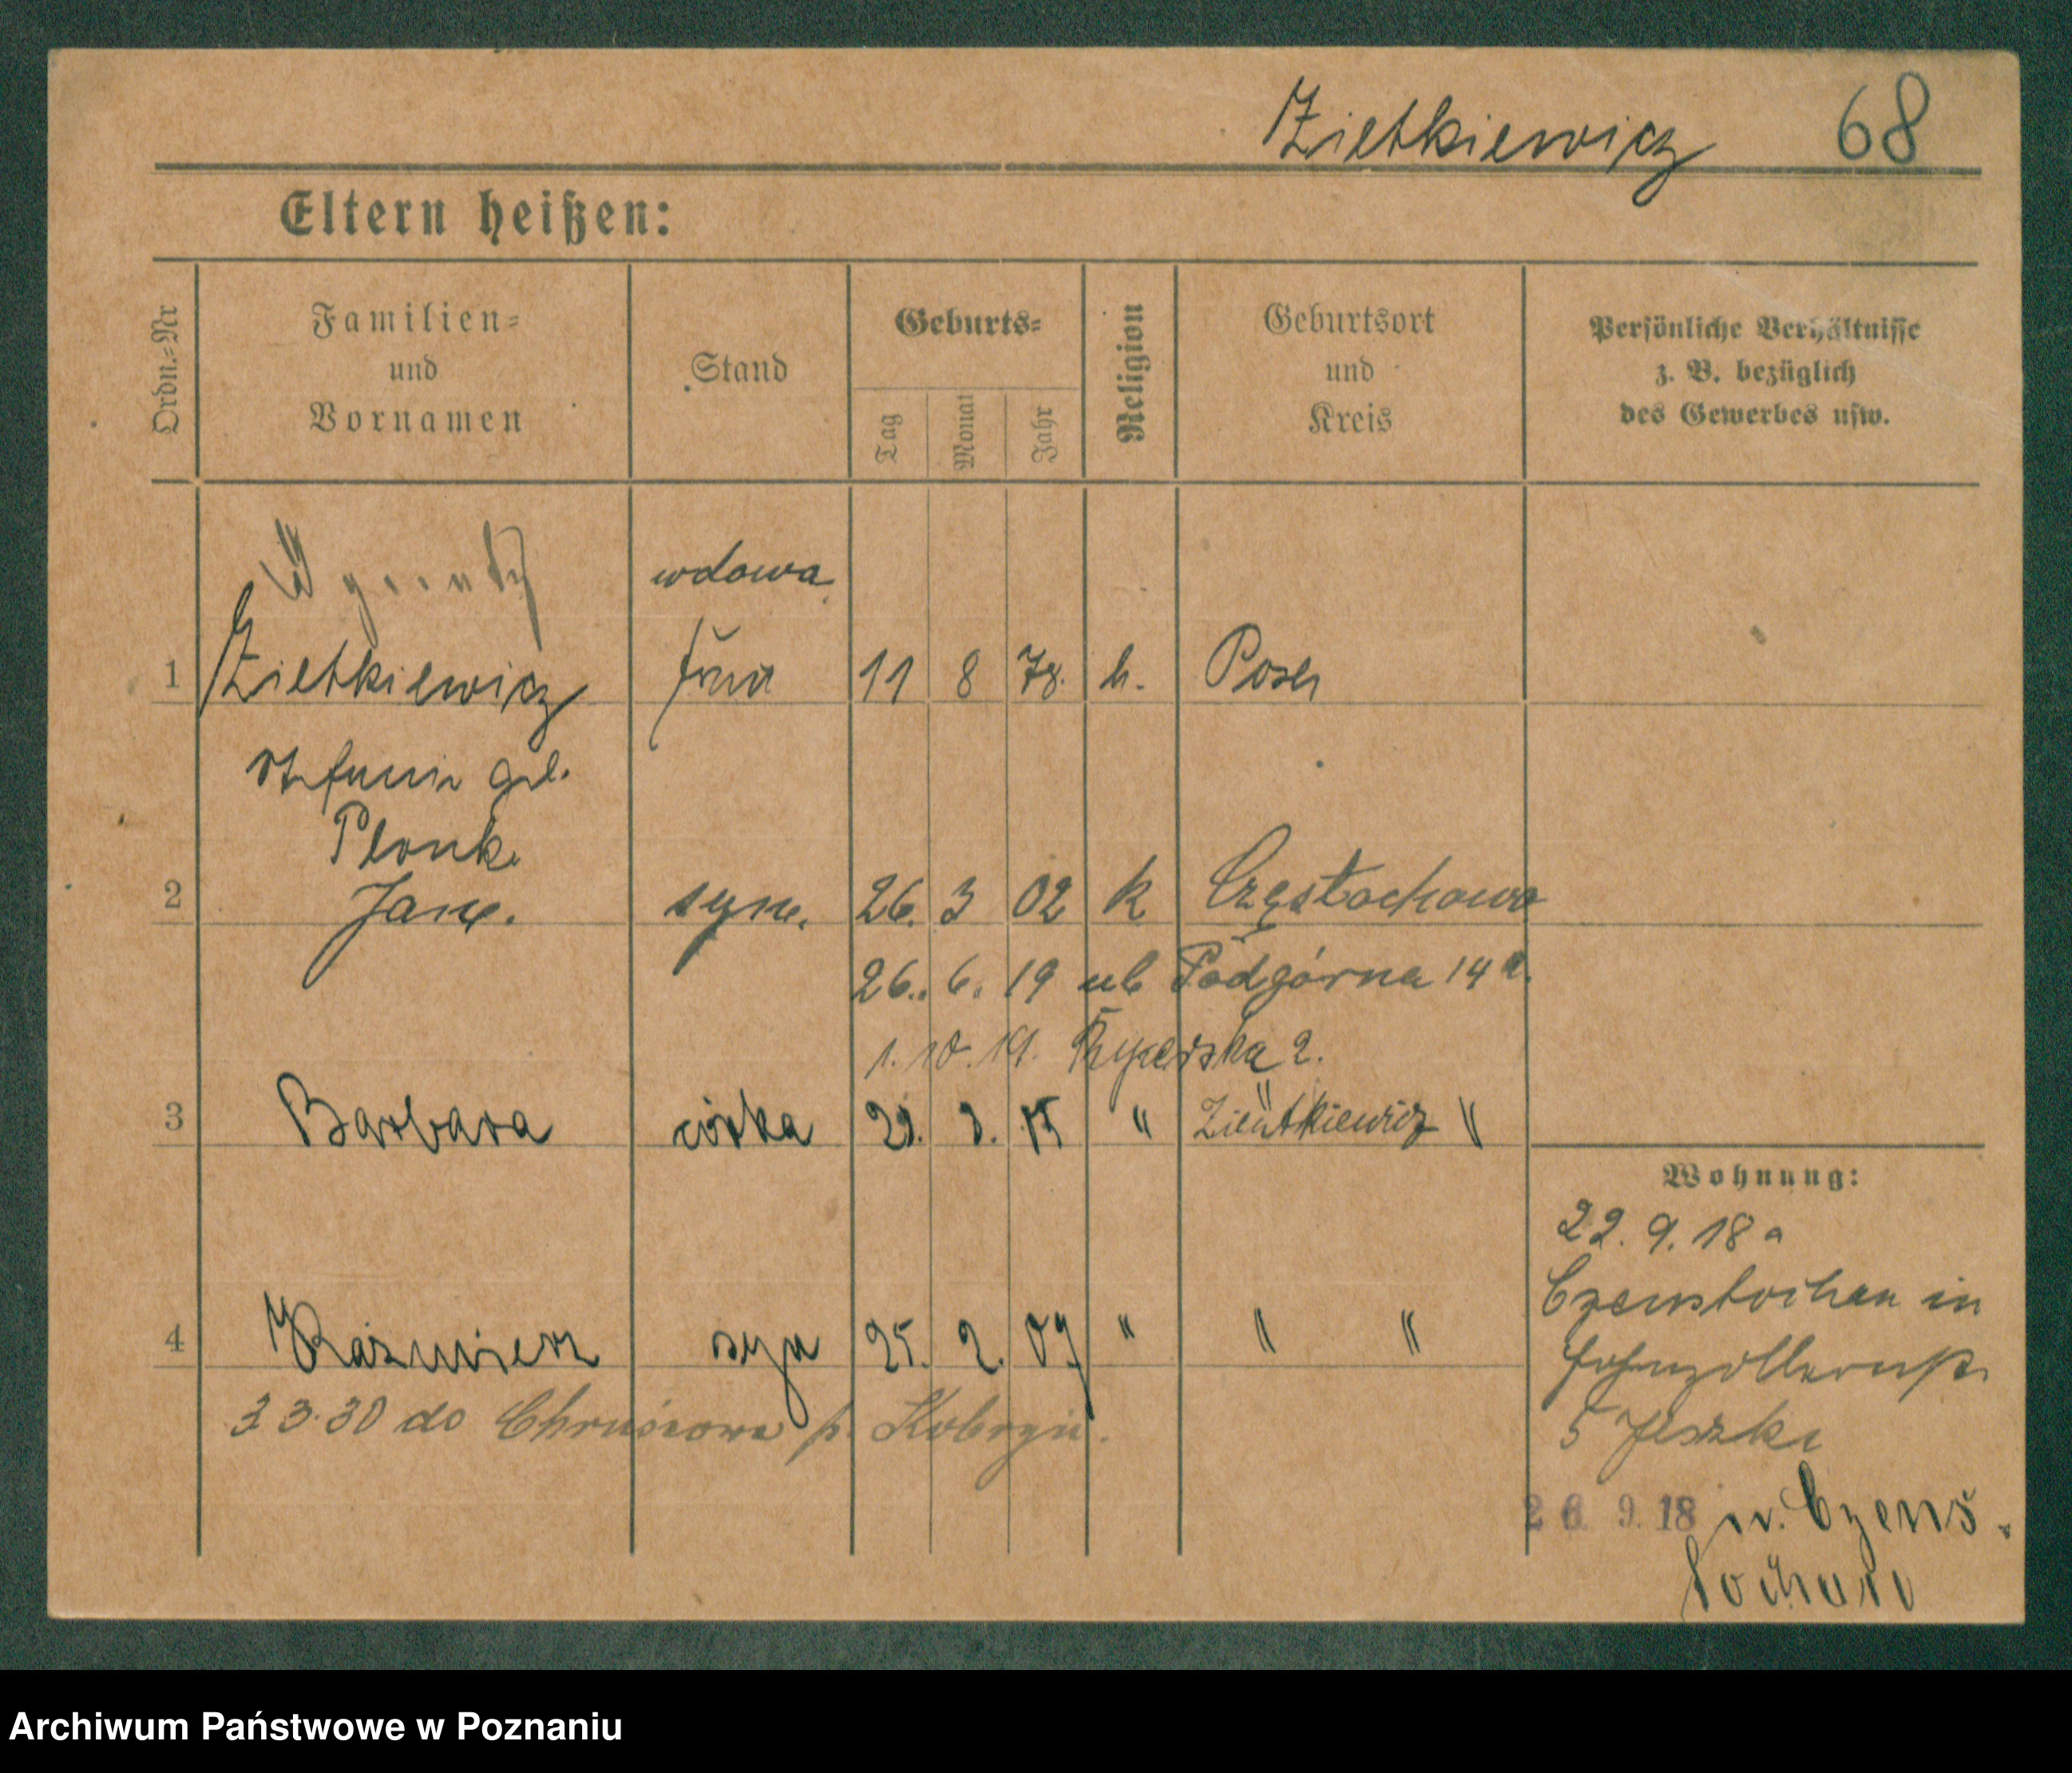 Zietkiewicz 68
Eltern heißen:
Ordn.=Nr
Familien=
und
Vornamen
Stand
Geburts=
Tag
Monat
Jahr
Religion
Geburtsort
und
Kreis
Persönliche Verhältnisse
z. B. bezüglich
des Gewerbes usw.
wdowa
1 Zietkiewicz Frau 11 8 78. k. Posen
Stefanie geb.
Plonk
2 Jan. syn. 26. 3 02 k Częstochowa
26. 6. 19 ul Podgórna 14 a.
1. 10. 19. Rycerska 2.
3 Barbara córka 29. 3. 15 " " Zientkiewicz "
Wohnung:
22. 9. 18 a
Czenstochau in
Hohenzollernstr.
5 Jeszke
4 Kazimierz syn 25. 2. 07 " " "
3 3. 30 do p. Kobryń.
26. 9. 18 n. Czens-
tochau
Archiwum Państwowe w Poznaniu